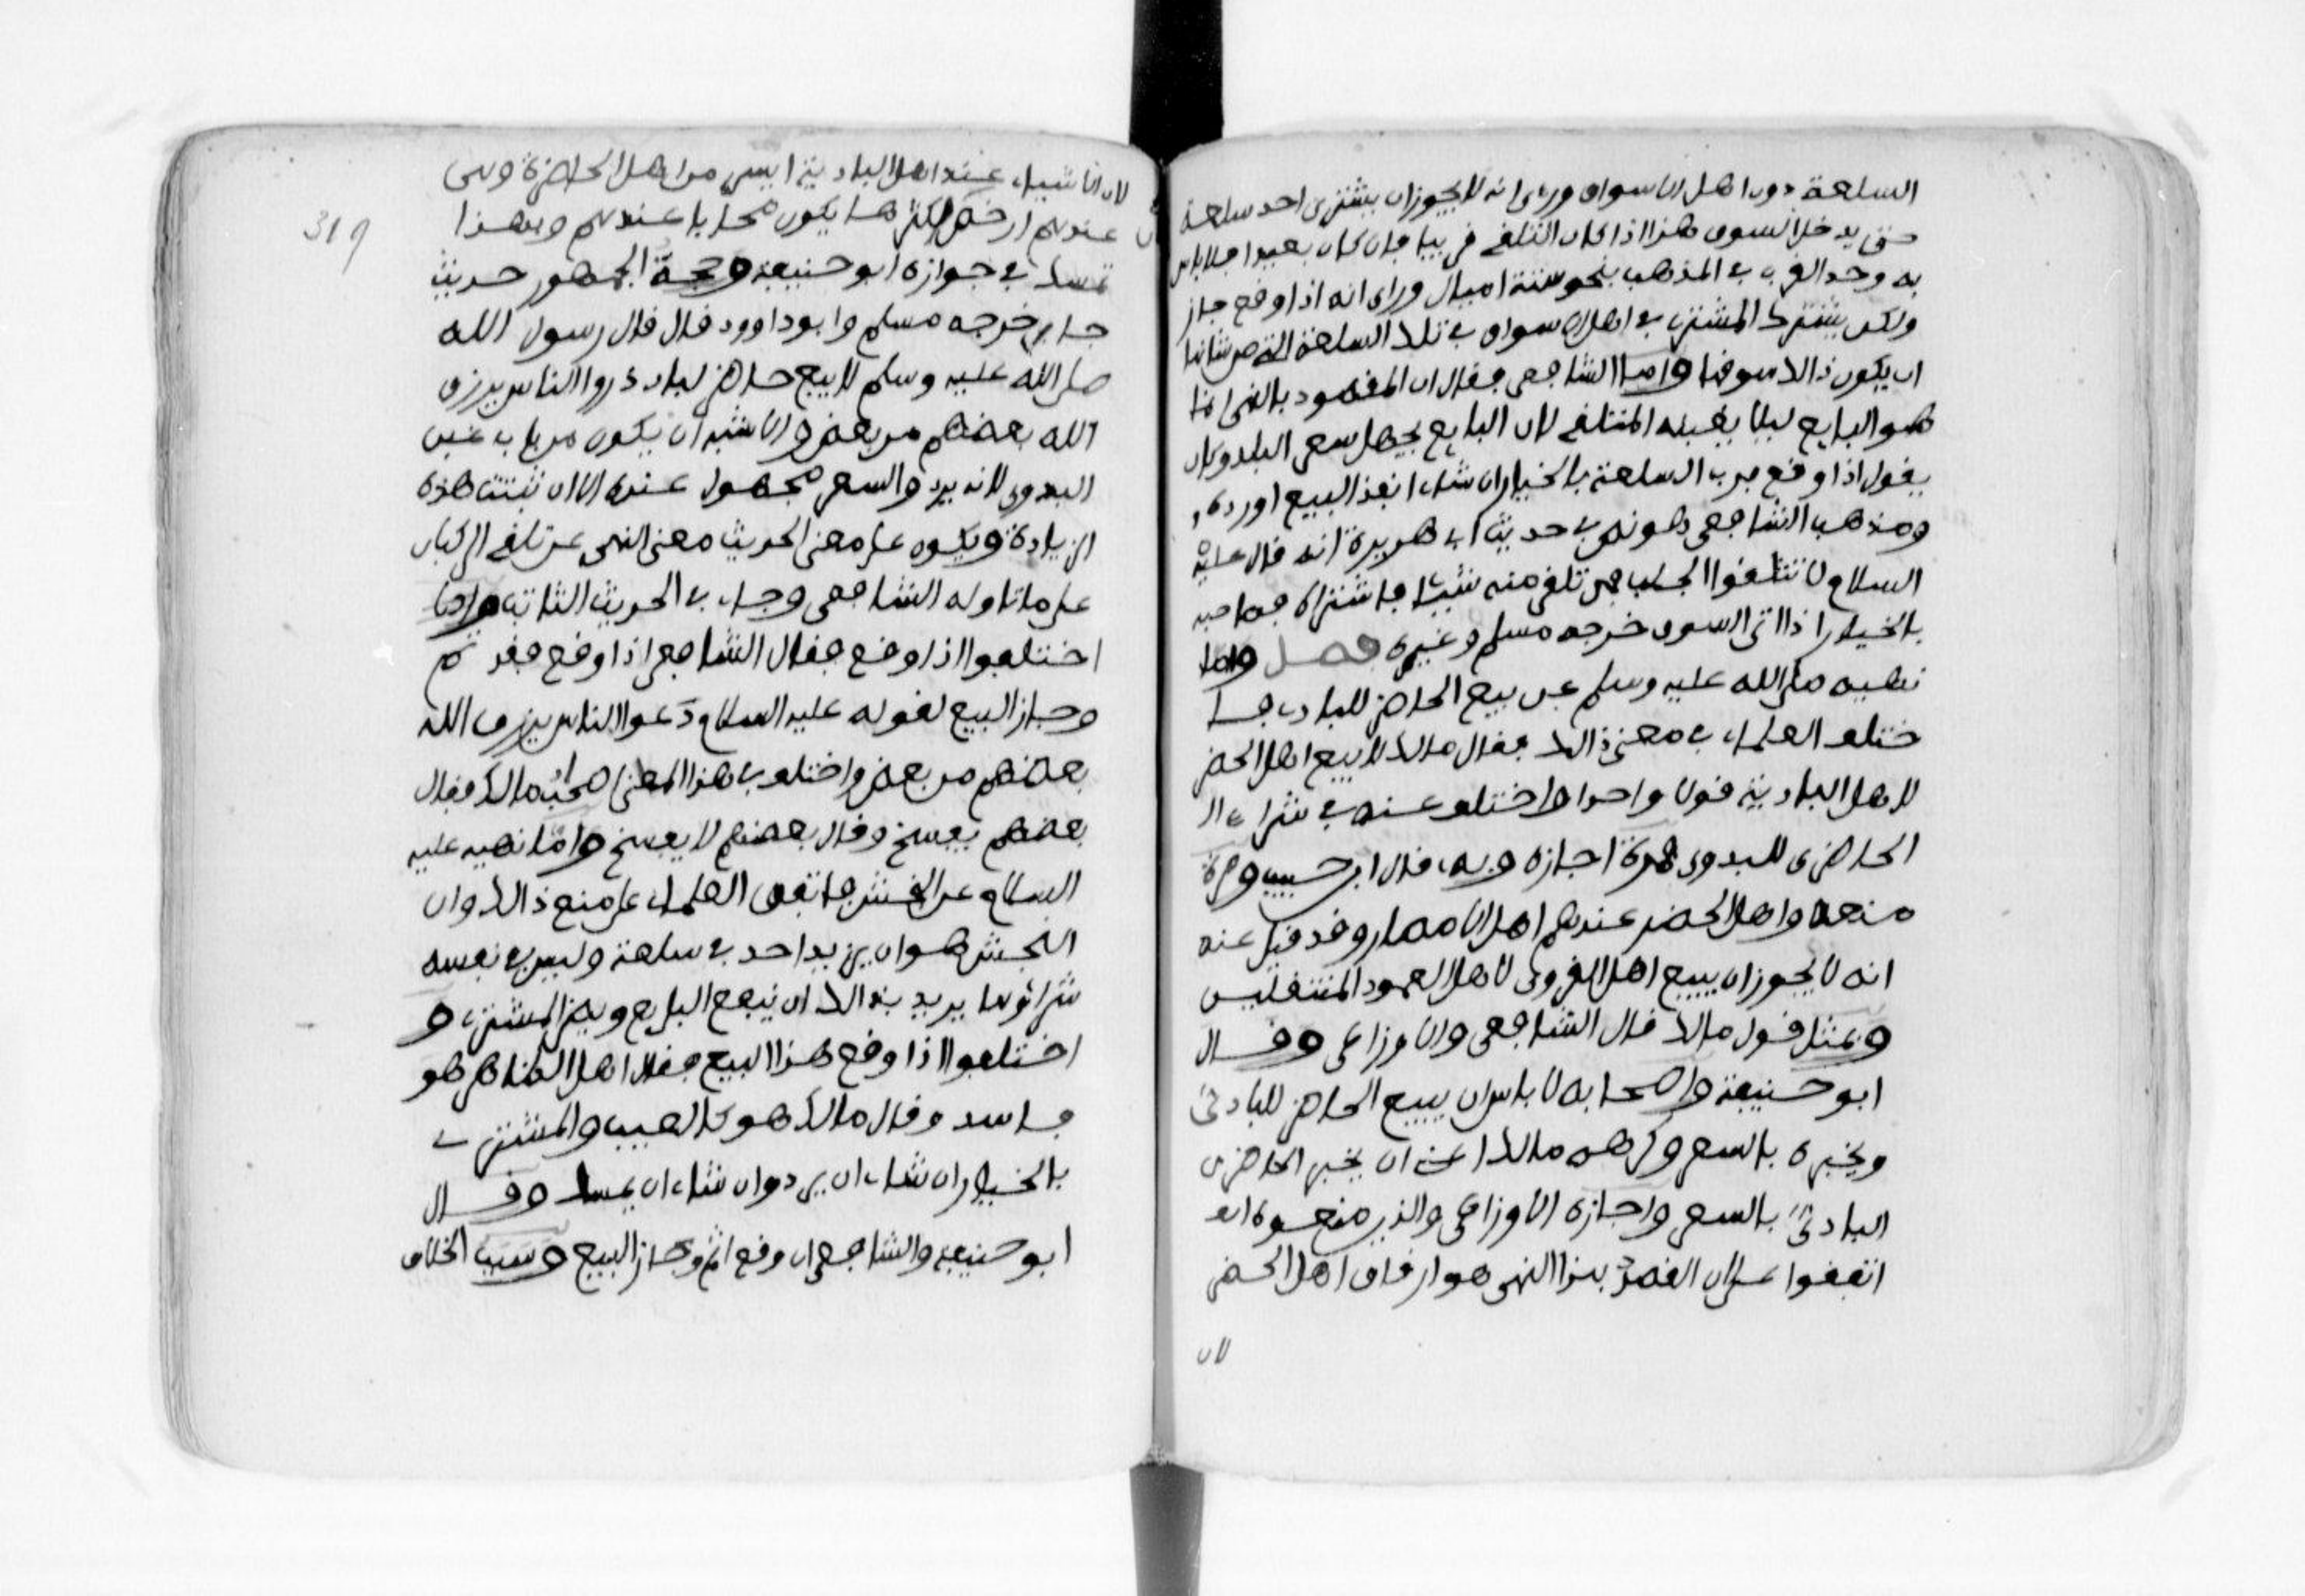 السلعة دون اهل الاسواق ورءى انه لا يجوز ان يشترى احد سلعة
حتى يدخل السوق هذا اذا كان التلقى قريبا فان كان بعيدا فلا باس
به وحد القرب في المذهب بنحو ستة اميال وراى انه اذا وقع جاز
ولكن يشترك المشترى في اهل الاسواق في تلك السلعة التى من شانها
ان يكون ذالك سوقها واما الشافعى فقال ان المقصود بالنهى انما
هو البايع ليلا يغبنه المتلقى لان البايع يجهل سعر البلد وكان
يقول اذا وقع فرب السلعة بالخيار ان شاء انفذ البيع او رده
ومذهب الشافعى هو نص في حديث ابى هريرة انه قال عليه
السلام لا تتلقوا الجلب فمن تلقى منه شيئا فاشتراه فصاحبه
بالخيار اذا اتى السوق خرجه مسلم وغيره فصل واما
نهيه صلى الله عليه وسلم عن بيع الحاضر للبادى فا
ختلف العلماء في معنى ذالك فقال مالك لا يبيع اهل الحضر
لاهل البادية قولا واحدا واختلف عنه في شراء ال
الحاضرى للبدوى فمرة اجازه وبه قال ابن حبيب ومرة
منعه واهل الحضر عندهم اهل الامصار وقد قيل عنه
انه لا يجوز ان يبيع اهل القرى لاهل العمود المنتقلين
وبمثل قول مالك قال الشافعى والاوزاعى وقال
ابو حنيفة واصحابه لا باس ان يبيع الحاضر للبادى
ويخبره بالسعر وكرهه مالك اعنى ان يخبر الحاضرى
البادى بالسعر واجازه الاوزاعى والذين منعوه ا
اتفقوا على ان القصد بهذا النهى هو ارفاق اهل الحضر
لان
319
لان الاشياء عند اهل البادية ايسر من اهل الحاضرة وهى
عندهم ارخص بل اكثر ما يكون مجانا عندهم وبهذا
تمسك في جوازه ابو حنيفة وحجة الجمهور حديث
جابر خرجه مسلم وابو داوود قال قال رسول الله
صلى الله عليه وسلم لا يبيع حاضر لباد ذروا الناس يرزق
الله بعضهم من بعض والاشبه ان يكون من باب غبن
البدوى لانه يرد والسعر مجهول عنده الا ان تثبت هذه
الزيادة ويكون على معنى الحديث معنى النهى عن تلقى الركبان
على ما تاوله الشافعى وجاء في الحديث الثابت واما
اختلفوا اذا وقع فقال الشافعى اذا وقع فقد تم
وجاز البيع لقوله عليه السلام دعوا الناس يرزق الله
بعضهم من بعض واختلف في هذا المعنى اصحاب مالك فقال
بعضهم يفسخ وقال بعضهم لا يفسخ واما نهيه عليه
السلام عن النجش فاتفق العلماء على منع ذالك وان
النجش هو ان يزيد احد في سلعة وليس في نفسه
شراؤها يريد بذالك ان ينفع البايع ويضر المشترى و
اختلفوا اذا وقع هذا البيع فقال اهل الظاهر هو
فاسد وقال مالك هو كالعيب والمشترى
بالخيار ان شاء ان يرد وان شاء ان يمسك وقال
ابو حنيفة والشافعى ان وقع اثم وجاز البيع وسبب الخلاف